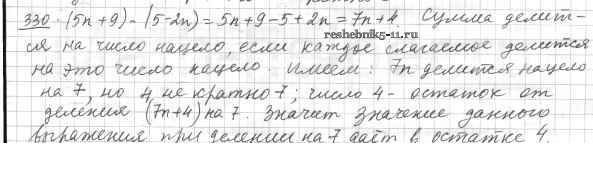 330. (5n+9) - (5-2n) = 5n+9-5+2n = 7n+4. Сумма делит-
reshebnik5-11.ru
ся на число нацело, если каждое слагаемое делится
на это число нацело. Имеем: 7n делится нацело
на 7, но 4 не кратно 7; число 4 - остаток от
деления (7n+4) на 7. Значит значение данного
выражения при делении на 7 даёт в остатке 4.